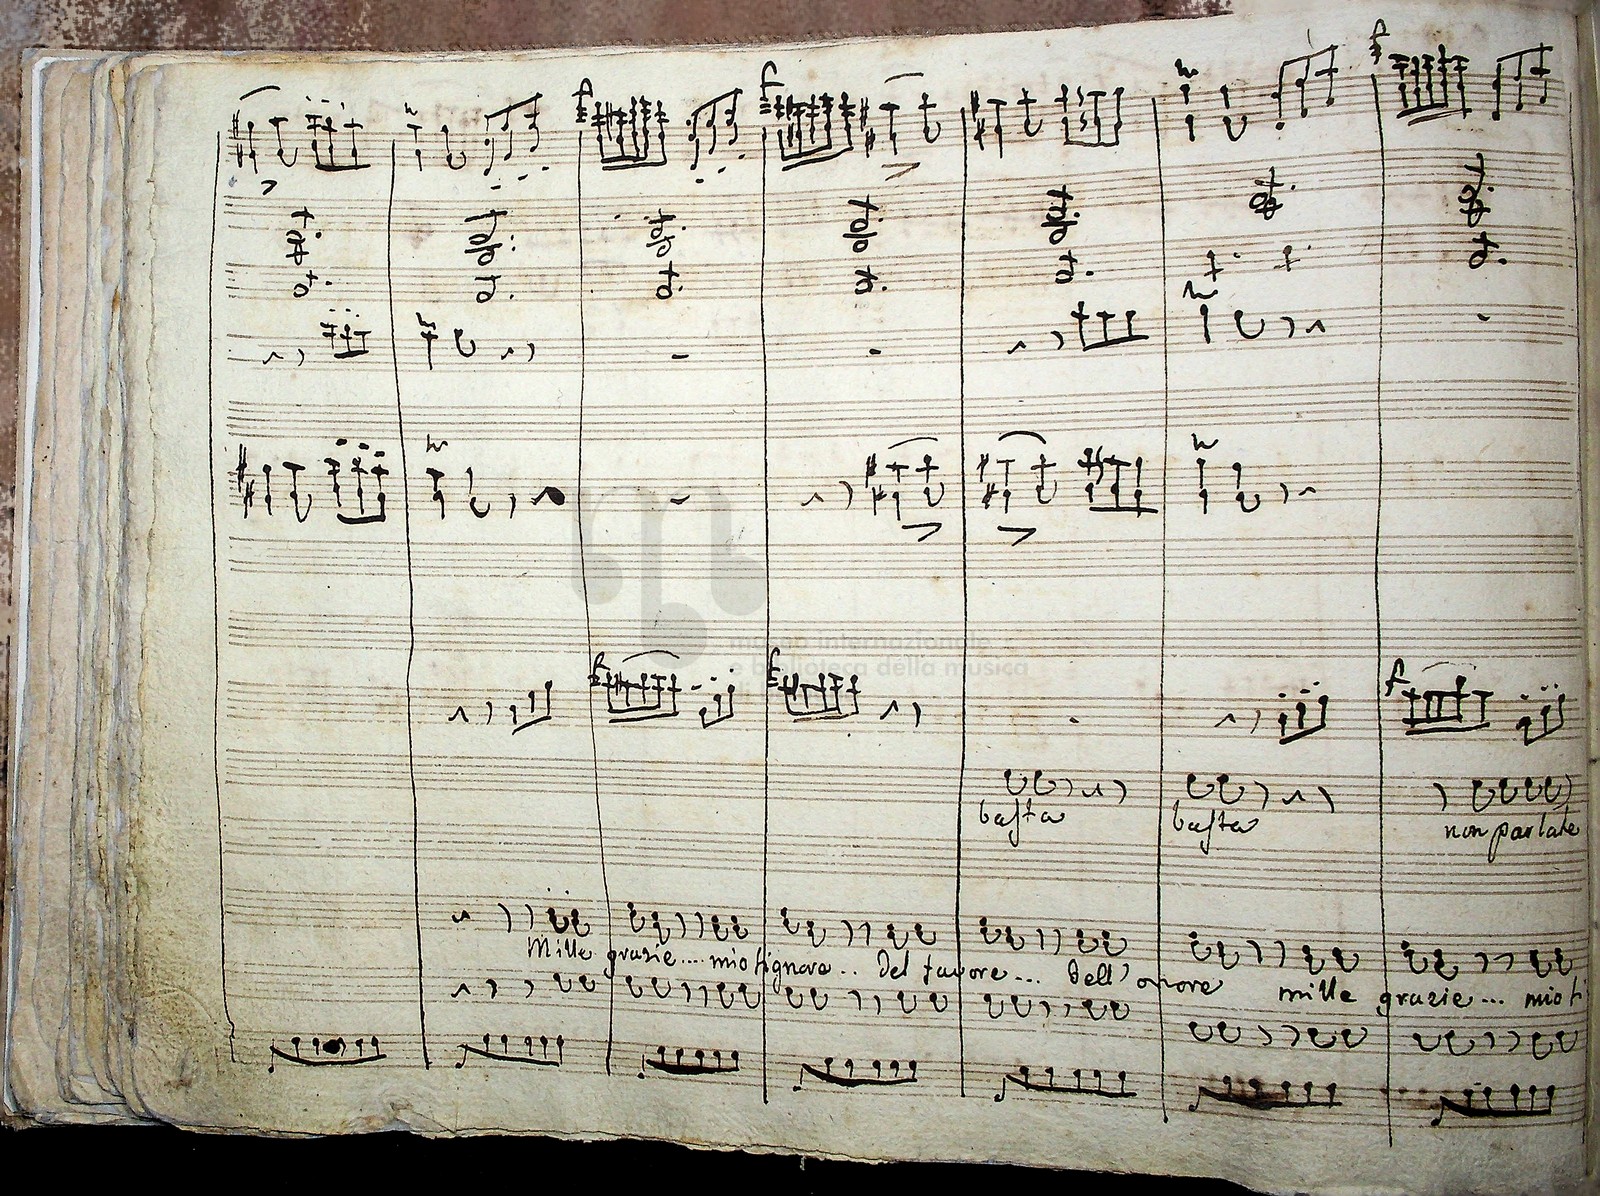 museo internazionale
e biblioteca della musica
basta basta non parlate
Mille grazie.... mio signore.. del favore... dell' onore mille grazie... mio si